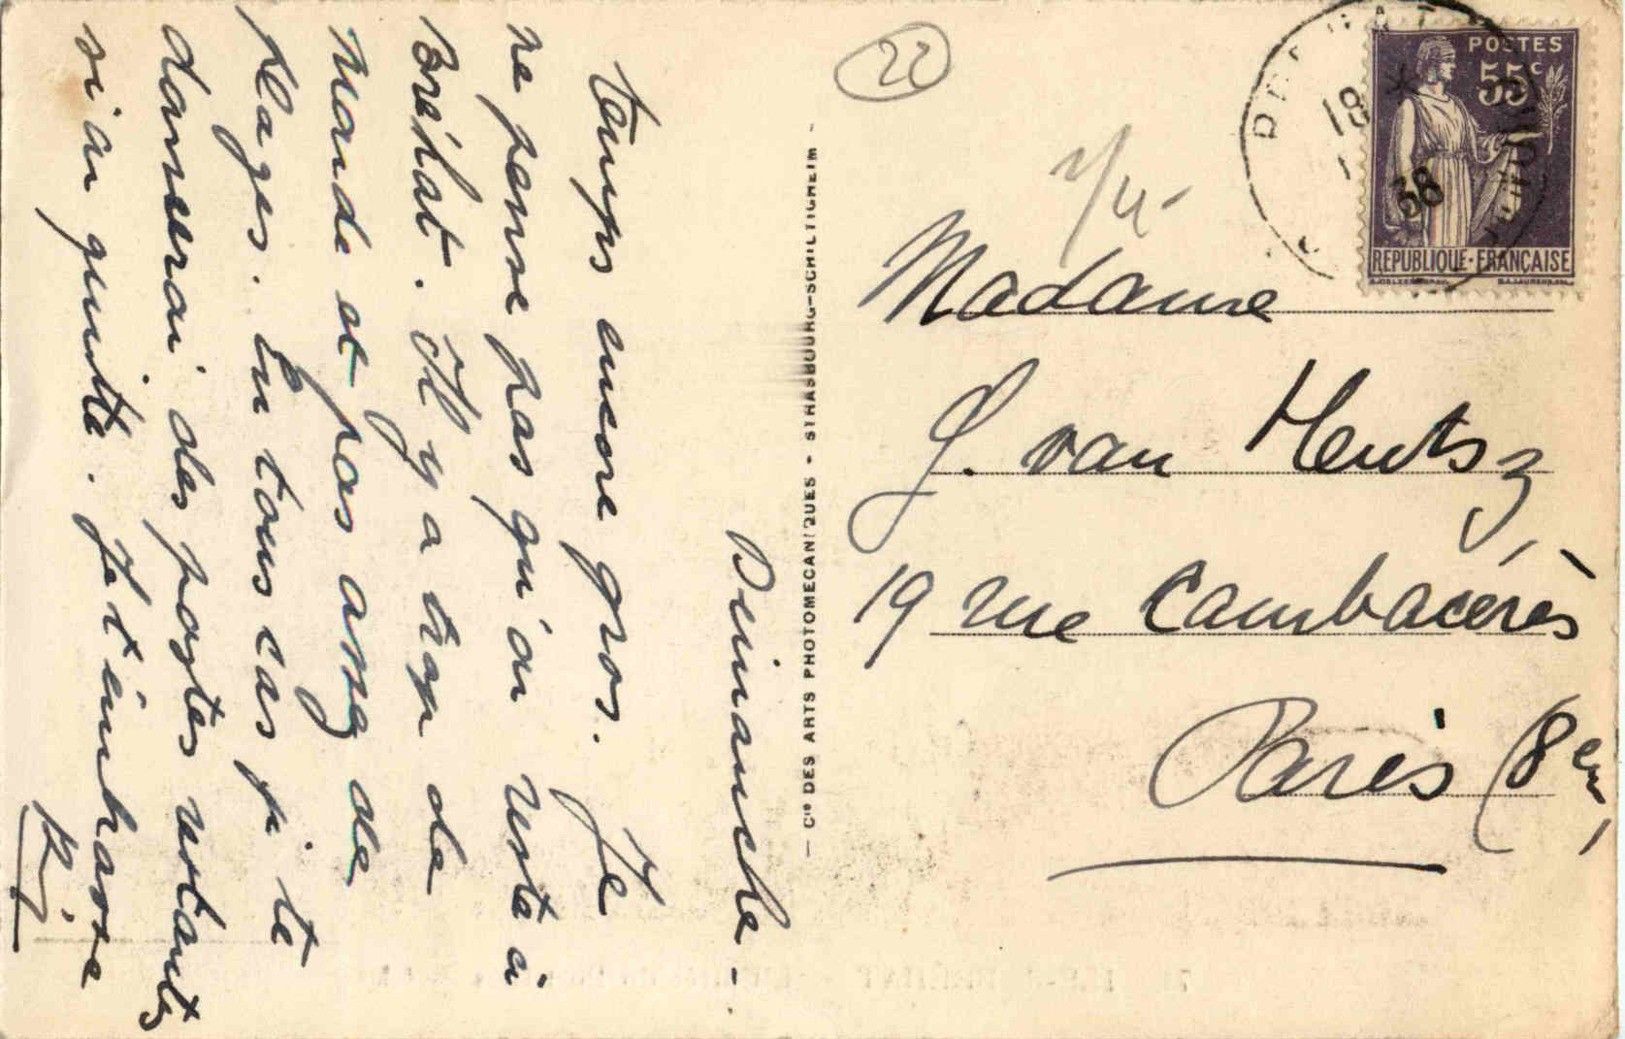 Dimanche.
Temps encore gros. Je
ne pense pas qu'on reste à
Bréhat. Il y a trop de
monde et pas assez de
plages. En tous cas je te
donnerai des postes restants
si on quitte. Je t'embrasse
C^ie DES ARTS PHOTOMECANIQUES - STRASBOURG-SCHILTIGHEIM
22
POSTES
55c
REPUBLIQUE·FRANÇAISE
18
38
Madame
J. van Heutsz,
19 rue Cambacérès
Paris (8em)